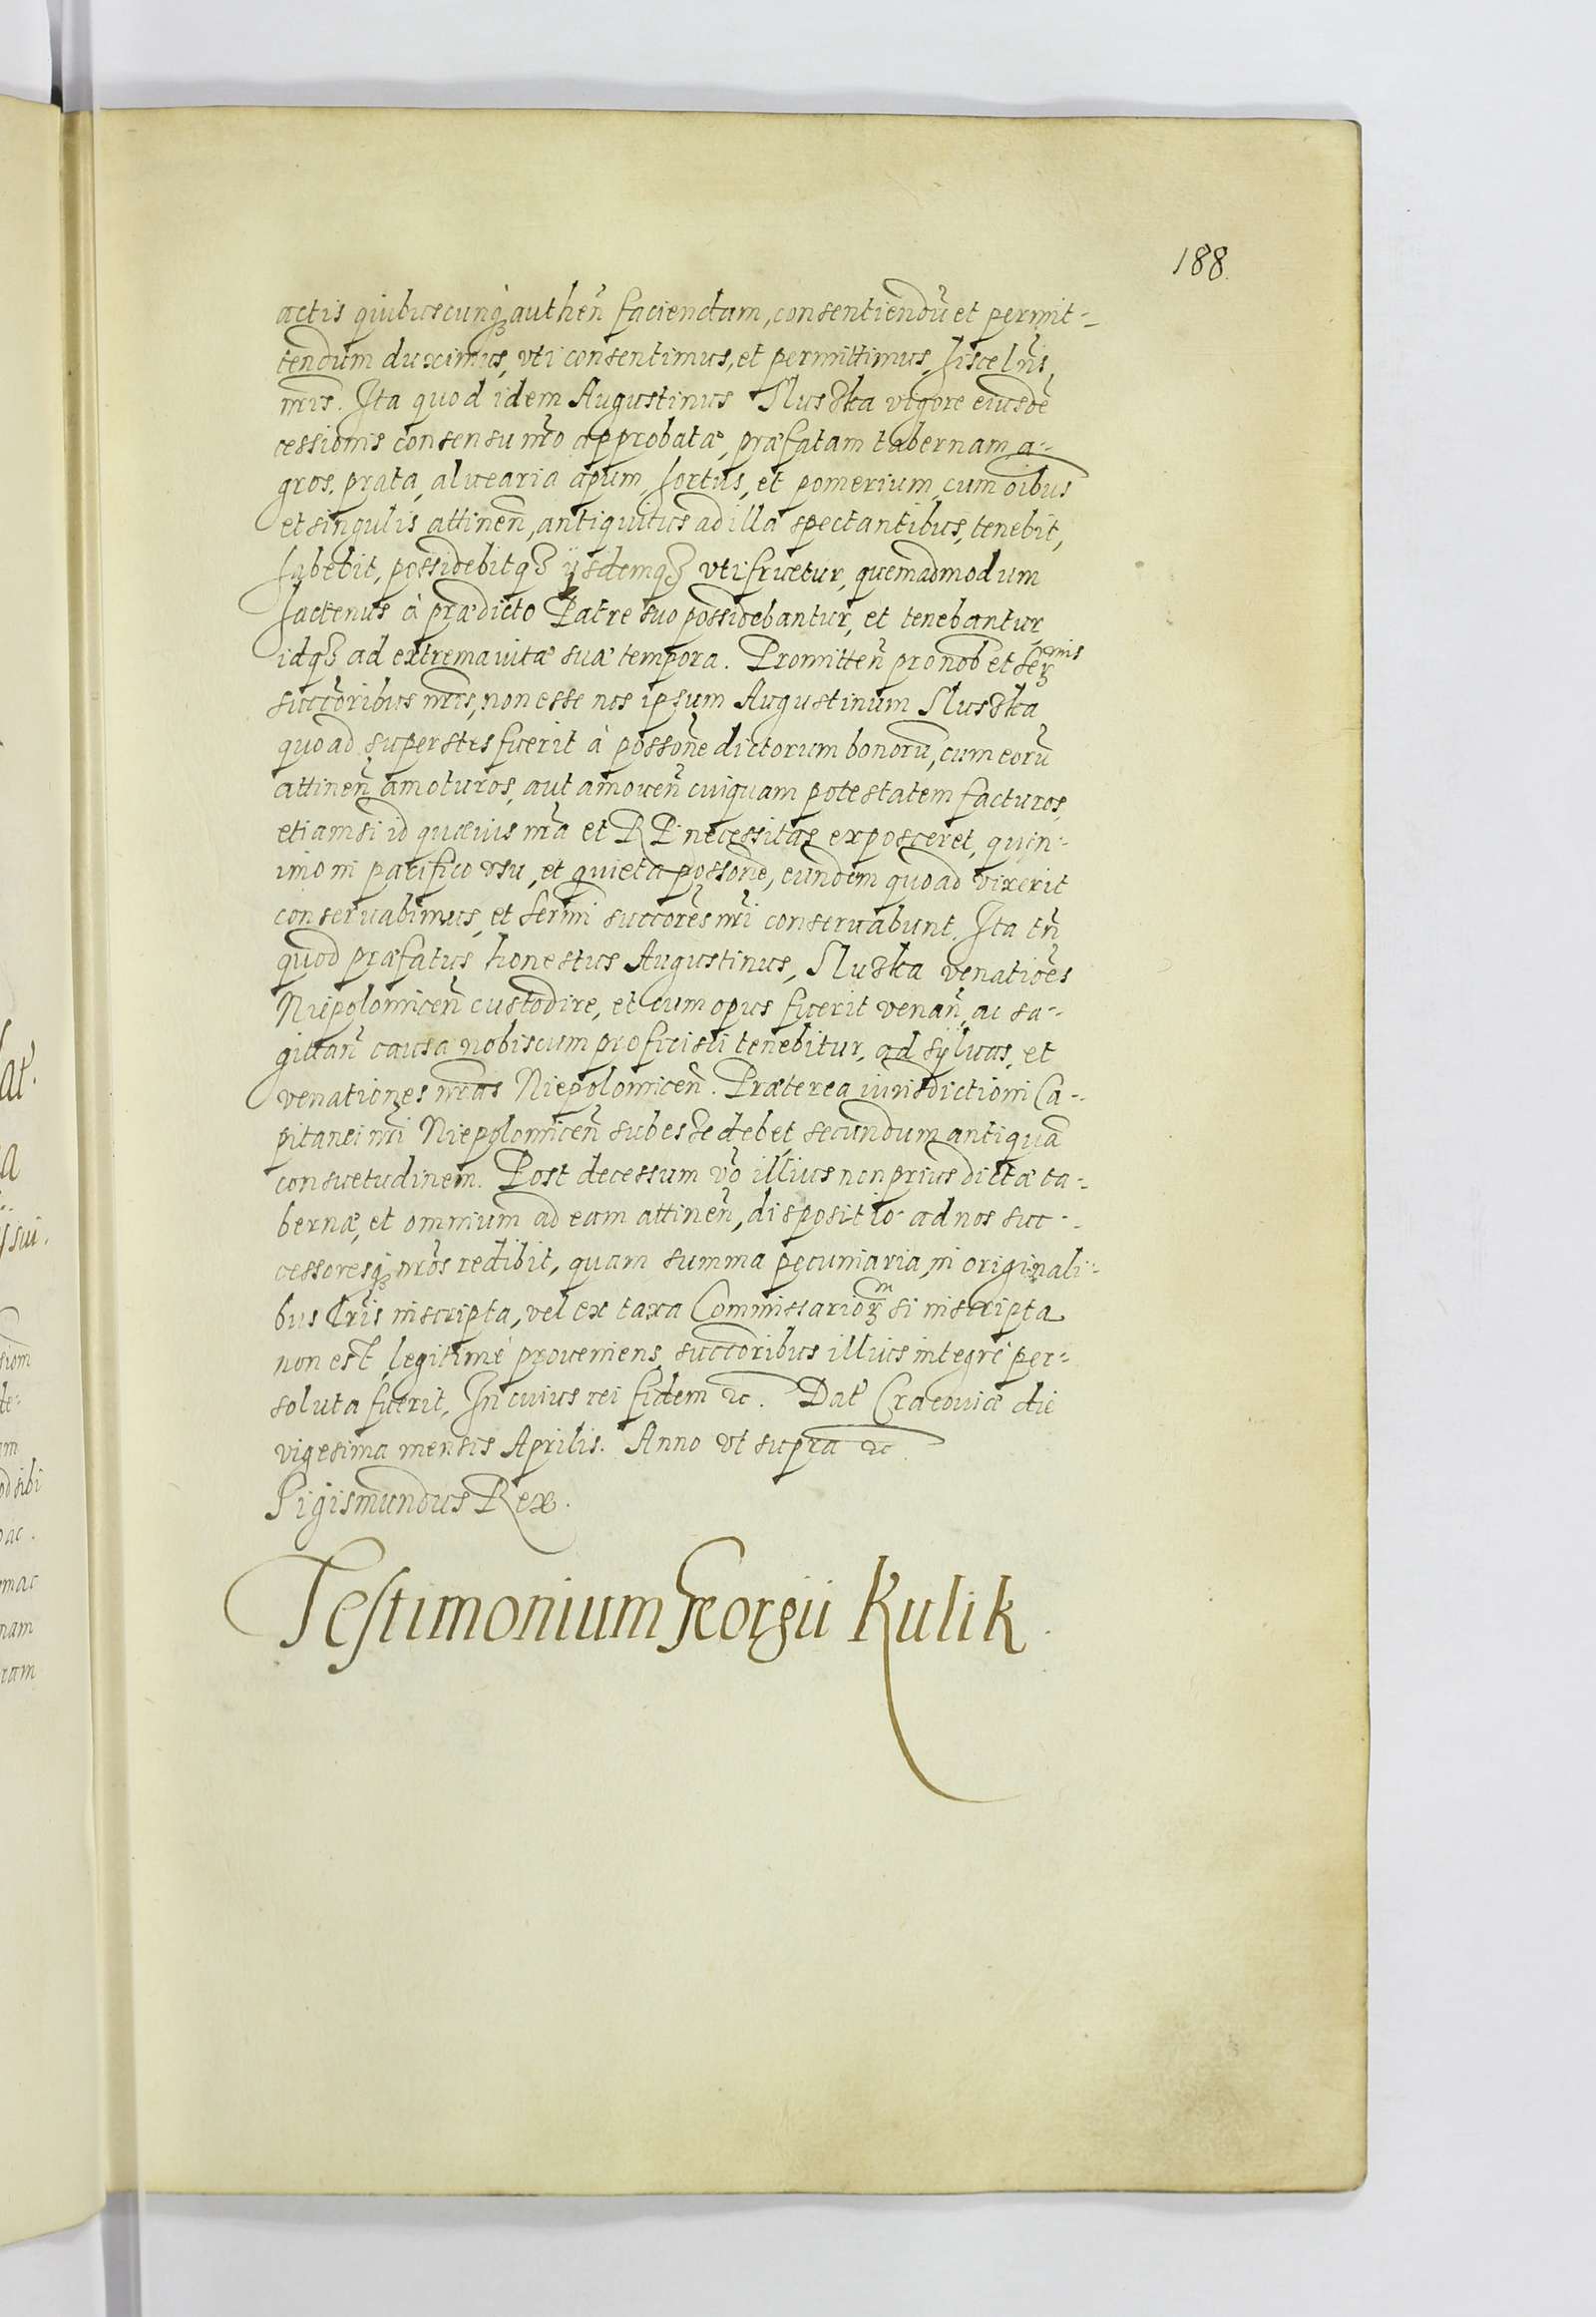 188.
actis quibuscunq₃ authen̄ faciendam, consentiendū et permit-
tendum duximus, vti consentimus, et permittimus, hisce lr̄is
nr̄is. Ita quod idem Augustinus Sluska vigore eiusdē
cessionis consensu nr̄o approbatæ, præfatam tabernam a-
gros, prata, aluearia apum, hortus, et pomerium, cum oībus
et singulis attinen̄, antiquitus ad illa spectantibus, tenebit,
habebit, possidebitq₃ ijsdemq₃ vti fruetur, quemadmodum
hactenus à prædicto Patre suo possidebantur, et tenebantur
idq₃ ad extrema vitæ suæ tempora. Promitten̄ pro nob̄ et Ser̄mis
succ̄oribus nr̄is, non esse nos ipsum Augustinum Sluska
quoad superstes fuerit à possōne dictorum bonorū, cum eorū
attinen̄ amoturos, aut amouen̄ cuiquam potestatem facturos,
etiamsi id quæuis nr̄a et RP necessitas exposceret, quin-
imo in pacifico vsu, et quieta possōne, eundem quoad vixerit
conseruabimus, et Ser̄mi succ̄ores nr̄i conseruabunt. Ita tn̄
quod præfatus honestus Augustinus, Sluska venatiōes
Niepolomicen̄ custodire, et cum opus fuerit venan̄, ac sa-
gittan̄ causa nobiscum proficisci tenebitur, ad syluas, et
venationes nr̄as Niepolomicen̄. Præterea iurisdictioni Ca-
pitanei nr̄i Niepolomicen̄ subesse debet secundum antiquā
consuetudinem. Post decessum v̄o illius non prius dictæ ta-
bernæ, et omnium ad eam attinen̄, dispositio ad nos suc-
cessoresq₃ nr̄os redibit, quam summa pecuniaria, in originali-
bus lr̄is inscripta, vel ex taxa Commissarioꝝm si inscripta
non est, legitimè proueniens, succ̄oribus illius integrè per-
soluta fuerit. In cuius rei fidem ꝛc. Dat̄ Cracouiæ die
vigesima mensis Aprilis. Anno vt supra ꝛc
Sigismundus Rex.
Testimonium Georgii Kulik.